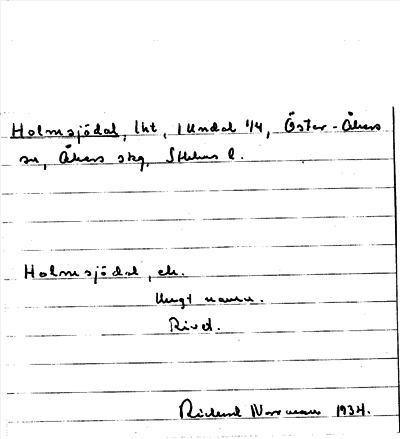 Holmsjödal, lht, 1 Undal 1/4, Öster-Åkers
sn, Åkers skg, Sthlms l.
Holmsjödal, ck.
Ungt namn.
Rivd.
Rickard Norrman 1934.